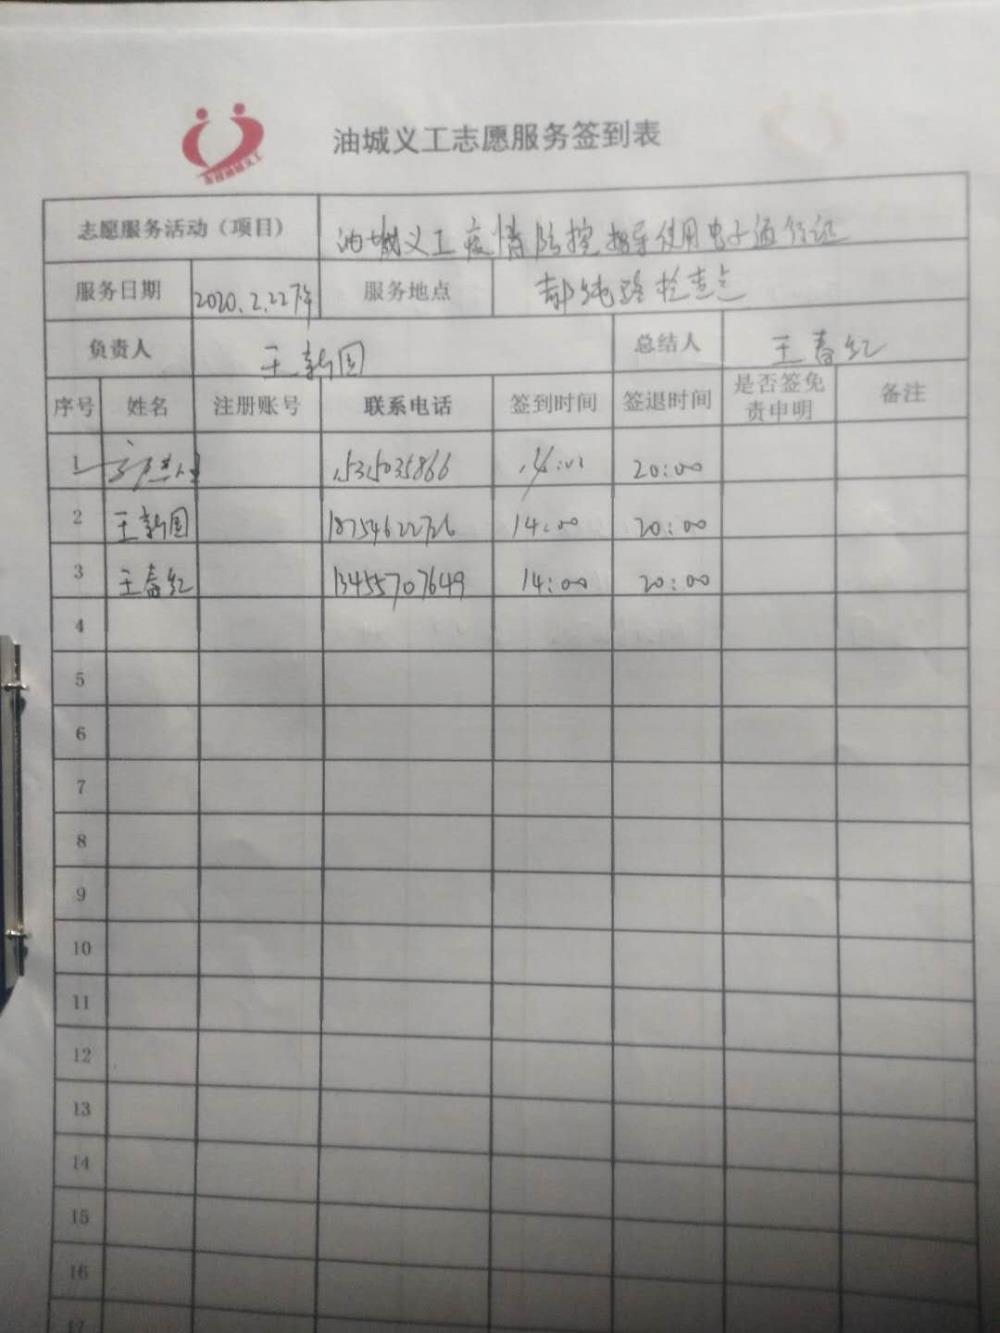 油城义工志愿服务签到表
志愿服务活动（项目） 油城义工疫情防控指导使用电子通行证
服务日期 2020.2.22下午 服务地点 路检查点
负责人 王新国 总结人 王春红
序号 姓名 注册账号 联系电话 签到时间 签退时间 是否签免责申明 备注
1 20:00
2 王新国 18754622726 14:00 20:00
3 王春红 13455707649 14:00 20:00
4
5
6
7
8
9
10
11
12
13
14
15
16
17